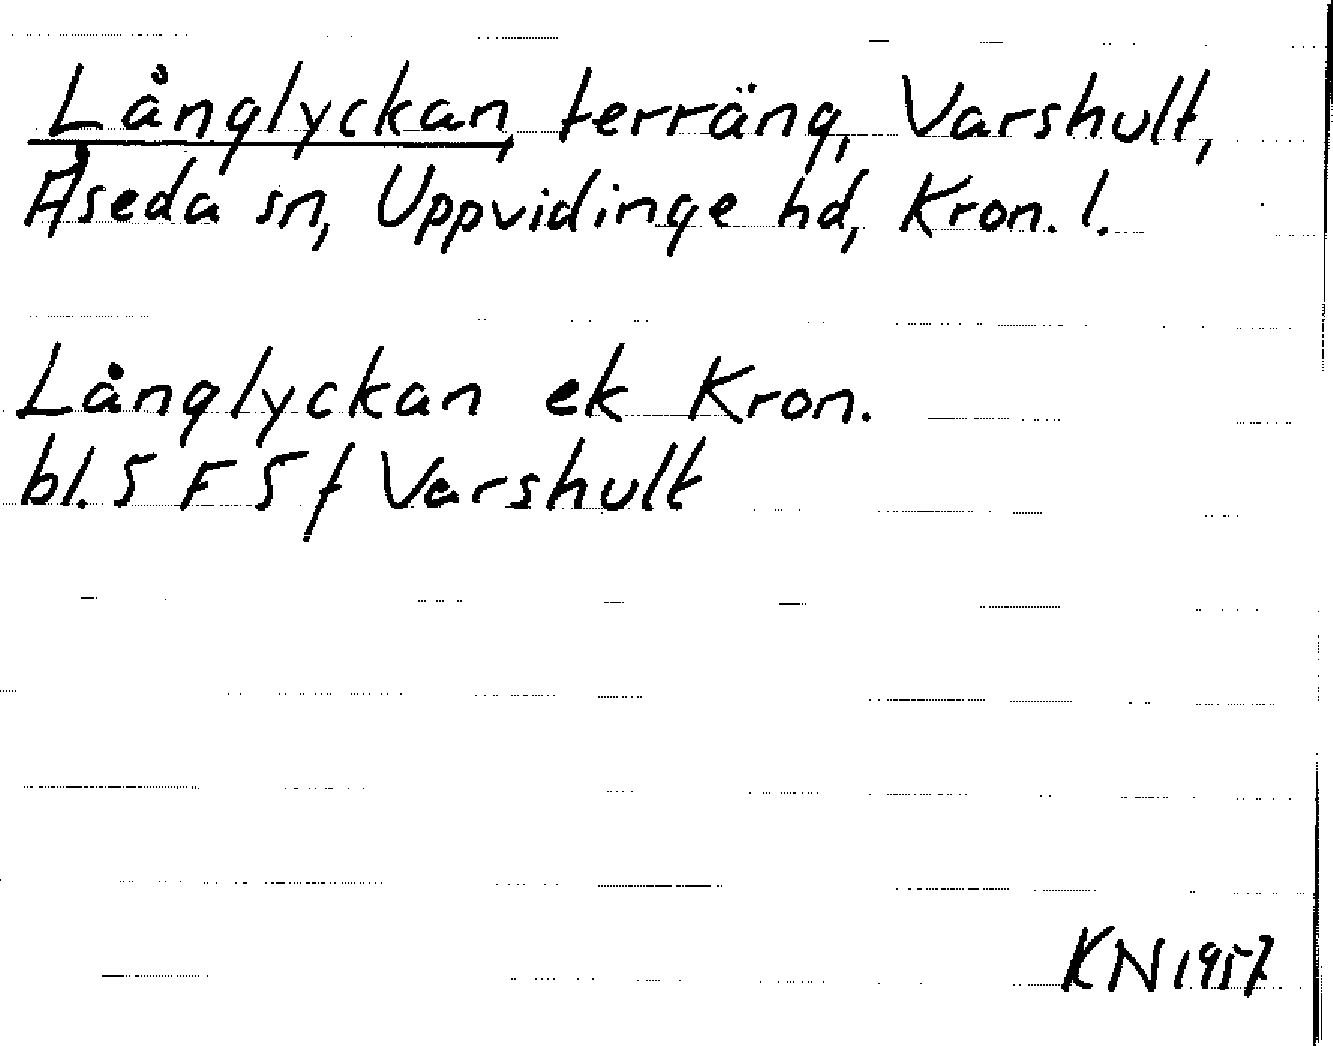 Långlyckan, terräng, Varshult,
Åseda sn, Uppvidinge hd, Kron. l.
Långlyckan ek Kron.
bl. 5 F 5 f Varshult
KN 1957